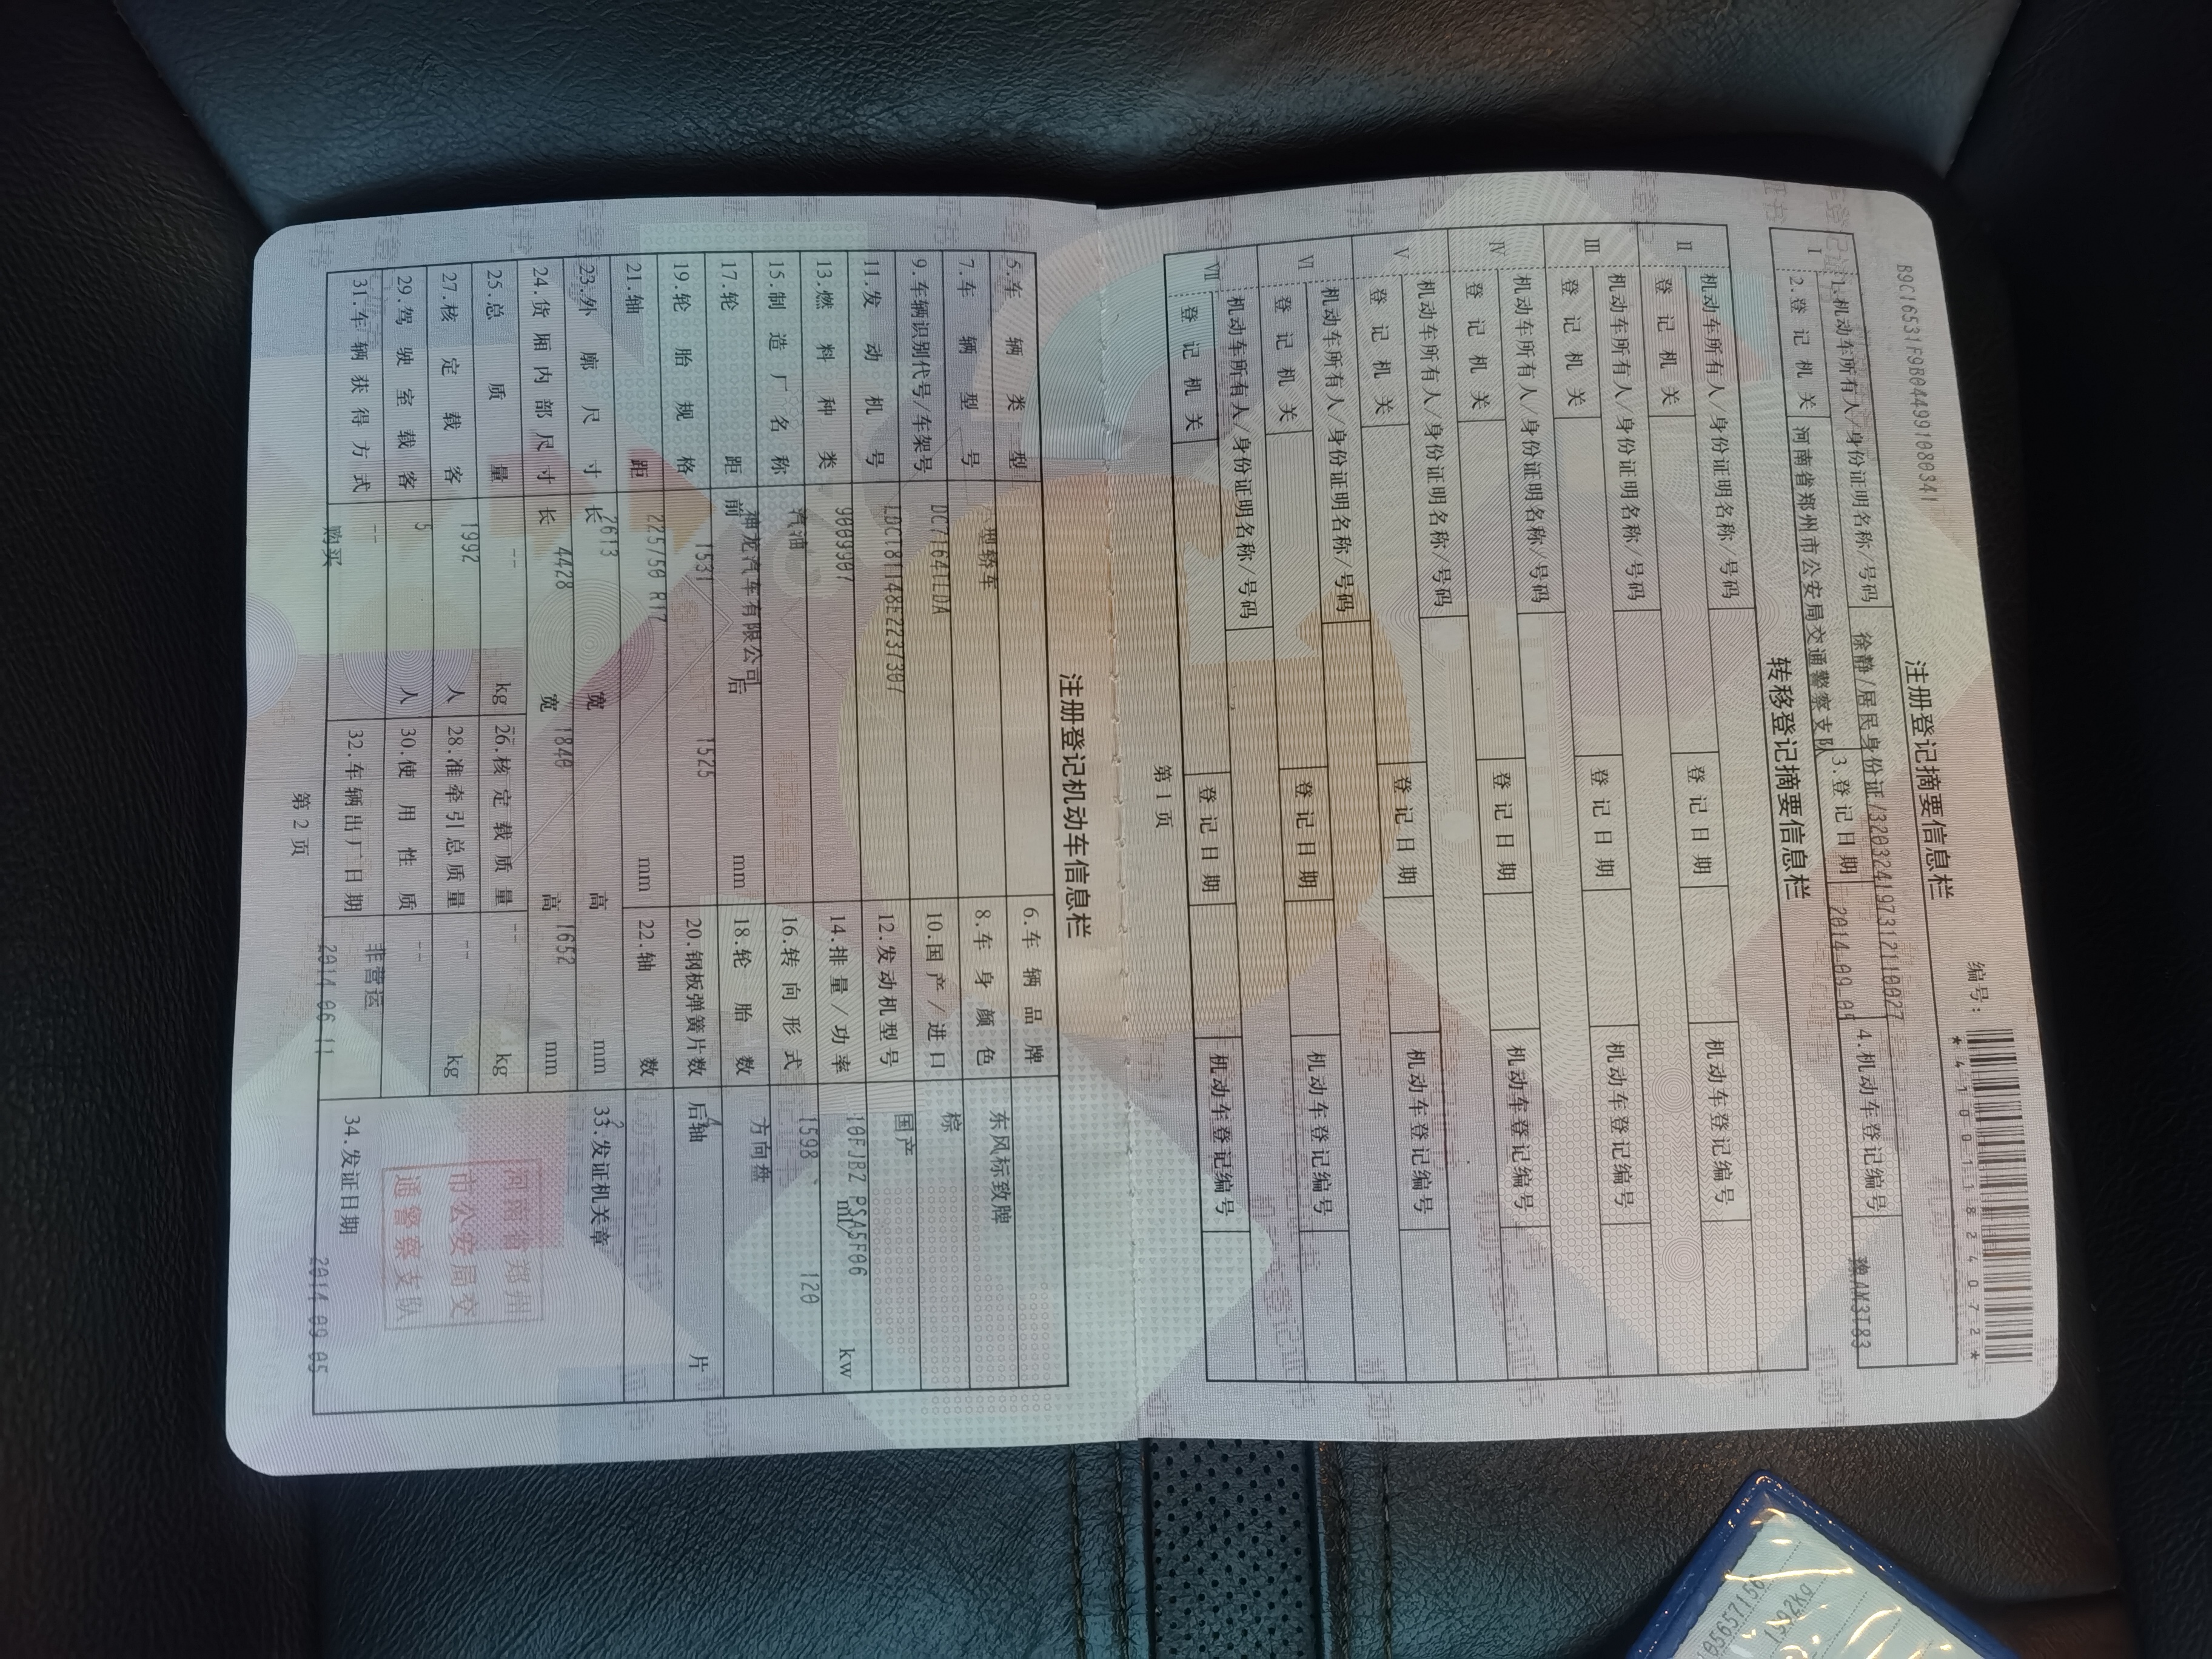 B9C16531F9B044991080341
编号：
*410011824072*
注册登记摘要信息栏
Ⅰ 1.机动车所有人/身份证明名称/号码 徐静/居民身份证/320324197312110027
2.登记机关 河南省郑州市公安局交通警察支队 3.登记日期 2014-09-05 4.机动车登记编号 豫AM3T83
转移登记摘要信息栏
Ⅱ 机动车所有人/身份证明名称/号码
登记机关 登记日期 机动车登记编号
Ⅲ 机动车所有人/身份证明名称/号码
登记机关 登记日期 机动车登记编号
Ⅳ 机动车所有人/身份证明名称/号码
登记机关 登记日期 机动车登记编号
Ⅴ 机动车所有人/身份证明名称/号码
登记机关 登记日期 机动车登记编号
Ⅵ 机动车所有人/身份证明名称/号码
登记机关 登记日期 机动车登记编号
Ⅶ 机动车所有人/身份证明名称/号码
登记机关 登记日期 机动车登记编号
第1页
注册登记机动车信息栏
5.车辆类型 小型轿车 6.车辆品牌 东风标致牌
7.车辆型号 DC7164LLDA 8.车身颜色 棕
9.车辆识别代号/车架号 LDC181148E2237307 10.国产/进口 国产
11.发动机号 9009907 12.发动机型号 10FJBZ PSA5F06
13.燃料种类 汽油 14.排量/功率 1598 ml/ 120 kw
15.制造厂名称 神龙汽车有限公司 16.转向形式 方向盘
17.轮距 前 1531 后 1525 mm 18.轮胎数 4
19.轮胎规格 225/50 R17 20.钢板弹簧片数 后轴 片
21.轴距 2613 mm 22.轴数 2
23.外廓尺寸 长 4428 宽 1840 高 1652 mm 33.发证机关章
24.货厢内部尺寸 长 宽 高 mm
25.总质量 1992 kg 26.核定载质量 -- kg
27.核定载客 5 人 28.准牵引总质量 -- kg
29.驾驶室载客 -- 人 30.使用性质 非营运
31.车辆获得方式 购买 32.车辆出厂日期 2014-06-11 34.发证日期 2014-09-05
河南省郑州
市公安局交
通警察支队
第2页
1992kg